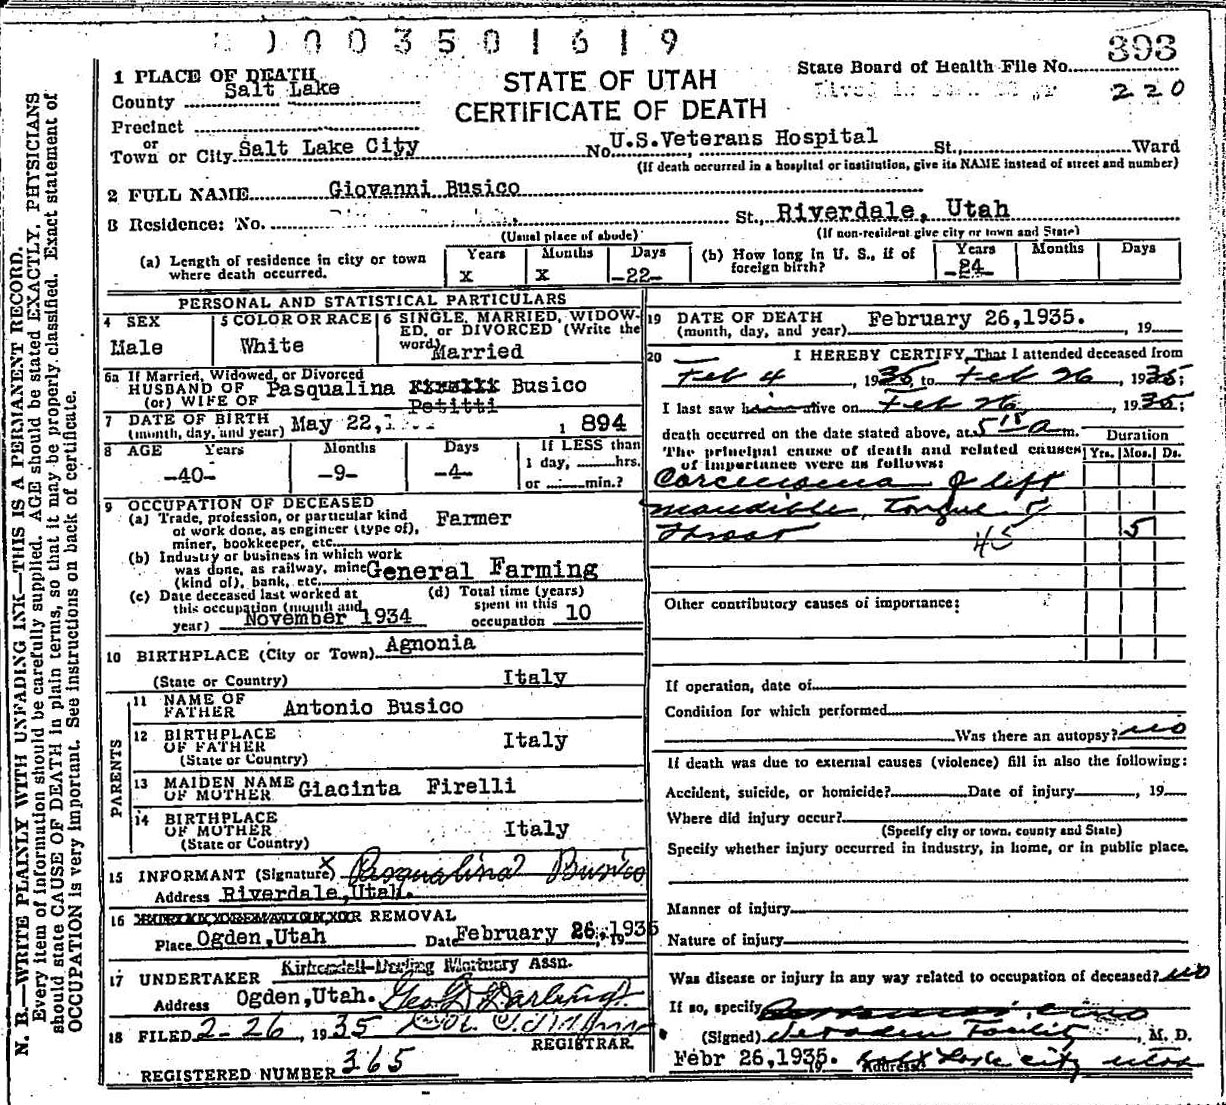 0003501619
393
1 PLACE OF DEATH
STATE OF UTAH
CERTIFICATE OF DEATH
State Board of Health File No.
220
County Salt Lake
Precinct
or
Town or City Salt Lake City No. U.S.Veterans Hospital St., Ward
(If death occurred in a hospital or institution, give its NAME instead of street and number)
2 FULL NAME Giovanni Busico
3 Residence: No. St., Riverdale, Utah
(Usual place of abode) (If non-resident give city or town and State)
(a) Length of residence in city or town where death occurred. Years x Months x Days -22-
(b) How long in U. S., if of foreign birth? Years -24- Months Days
PERSONAL AND STATISTICAL PARTICULARS
4 SEX Male
5 COLOR OR RACE White
6 SINGLE, MARRIED, WIDOWED, or DIVORCED (Write the word) Married
6a If Married, Widowed, or Divorced
HUSBAND OF Pasqualina Busico
(or) WIFE OF Petitti
7 DATE OF BIRTH (month, day, and year) May 22,1 1 894
8 AGE Years -40- Months -9- Days -4- If LESS than
1 day, hrs.
or min.?
9 OCCUPATION OF DECEASED
(a) Trade, profession, or particular kind of work done, as engineer (type of), miner, bookkeeper, etc. Farmer
(b) Industry or business in which work was done, as railway, mine (kind of), bank, etc. General Farming
(c) Date deceased last worked at this occupation (month and year) November 1934
(d) Total time (years) spent in this occupation 10
10 BIRTHPLACE (City or Town) Agnonia
(State or Country) Italy
PARENTS
11 NAME OF FATHER Antonio Busico
12 BIRTHPLACE OF FATHER (State or Country) Italy
13 MAIDEN NAME OF MOTHER Giacinta Firelli
14 BIRTHPLACE OF MOTHER (State or Country) Italy
15 INFORMANT (Signature) x Pasqualina Busico
Address Riverdale,Utah.
16 REMOVAL
Place Ogden,Utah Date February 26, 1935
17 UNDERTAKER Kirkendall-Darling Mortuary Assn.
Address Ogden,Utah. Geo D Darling
18 FILED 2-26, 1935
REGISTRAR
REGISTERED NUMBER 365
19 DATE OF DEATH (month, day, and year) February 26,1935. , 19
20 I HEREBY CERTIFY, That I attended deceased from
Feb 4, 1935, to Feb 26, 1935;
I last saw him alive on Feb 26, 1935;
death occurred on the date stated above, at 5 15 a m.
The principal cause of death and related causes of importance were as follows:
Duration
Yrs. Mos. Ds.
Carcinoma of left
mandible, Tongue &
Throat 5
45
Other contributory causes of importance:
If operation, date of
Condition for which performed
Was there an autopsy? no
If death was due to external causes (violence) fill in also the following:
Accident, suicide, or homicide? Date of injury , 19
Where did injury occur?
(Specify city or town, county and State)
Specify whether injury occurred in industry, in home, or in public place.
Manner of injury
Nature of injury
Was disease or injury in any way related to occupation of deceased? no
If so, specify
(Signed) Veterans Facility, M. D.
Febr 26,1935. 19 Address Salt Lake City Utah
N. B.—WRITE PLAINLY WITH UNFADING INK—THIS IS A PERMANENT RECORD.
Every item of information should be carefully supplied. AGE should be stated EXACTLY. PHYSICIANS
should state CAUSE OF DEATH in plain terms, so that it may be properly classified. Exact statement of
OCCUPATION is very important. See instructions on back of certificate.